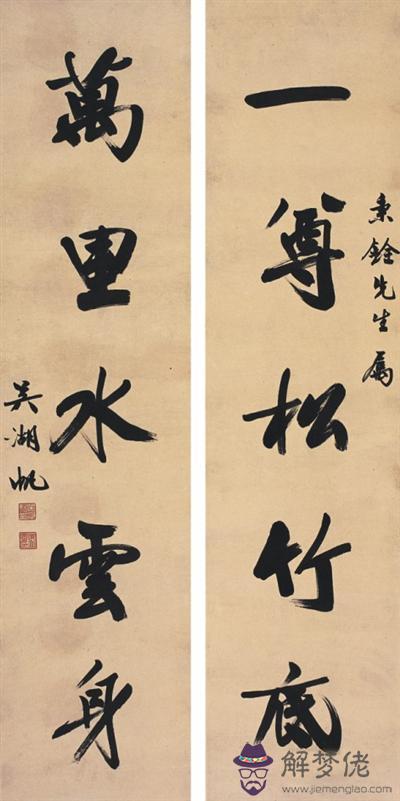 秉銓先生属
一尊松竹底
萬里水雲身
吴湖帆
解梦佬
www.jiemenglao.com